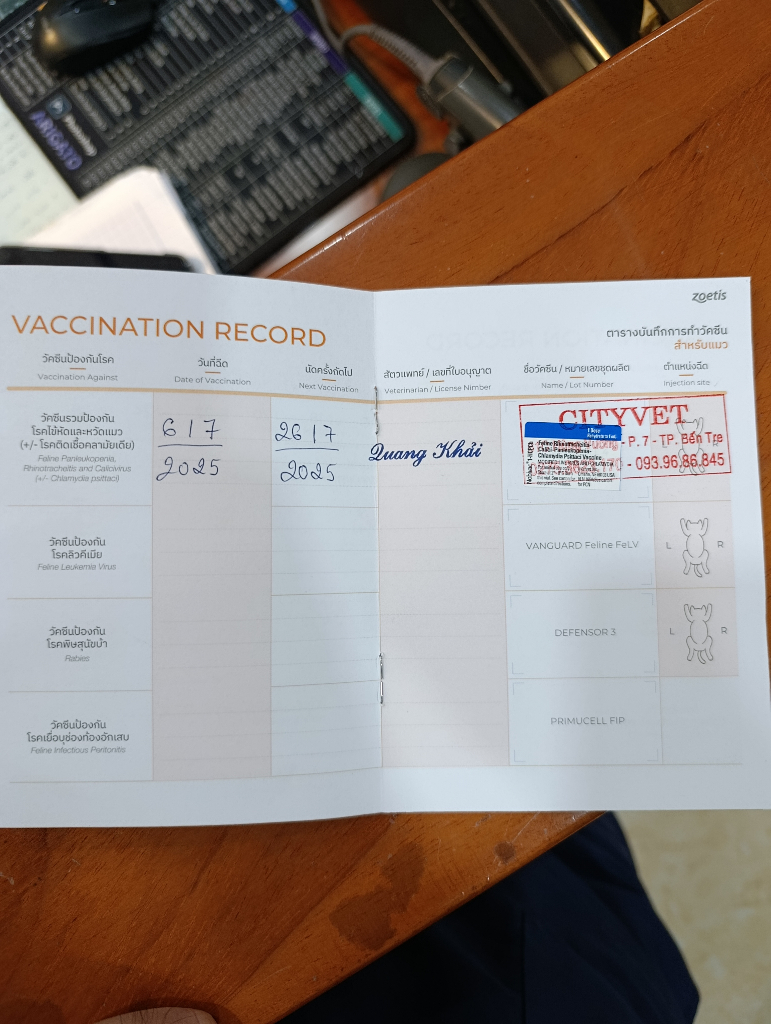 ARIGATO
Photoshop
zoetis
VACCINATION RECORD
ตารางบันทึกการทำวัคซีน
สำหรับแมว
วัคซีนป้องกันโรค
Vaccination Against
วันที่ฉีด
Date of Vaccination
นัดครั้งถัดไป
Next Vaccination
สัตวแพทย์ / เลขที่ใบอนุญาต
Veterinarian / License Nimber
ชื่อวัคซีน / หมายเลขชุดผลิต
Name / Lot Number
ตำแหน่งฉีด
Injection site
วัคซีนรวมป้องกัน
โรคไข้หัดและหวัดแมว
(+/- โรคติดเชื้อคลามัยเดีย)
Feline Panleukopenia,
Rhinotracheitis and Calicivirus
(+/- Chlamydia psittaci)
6 / 7
2025
26 / 7
2025
Quang Khải
CITYVET
- P. 7 - TP. Bến Tre
- 093.96.86.845
1 Dose
Feline Rhinotracheitis-
Calici-Panleukopenia-
Chlamydia Psittaci Vaccine
วัคซีนป้องกัน
โรคลิวคีเมีย
Feline Leukemia Virus
VANGUARD Feline FeLV
L R
วัคซีนป้องกัน
โรคพิษสุนัขบ้า
Rabies
DEFENSOR 3
L R
วัคซีนป้องกัน
โรคเยื่อบุช่องท้องอักเสบ
Feline Infectious Peritonitis
PRIMUCELL FIP